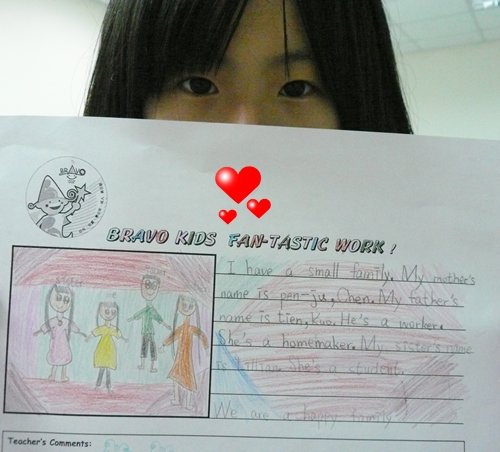 BRAVO
BRAVO KIDS FAN-TASTIC WORK !
sister
me
I have a small family. My mother's
name is pen-ju, Chen. My father's
name is tien, Kuo. He's a worker.
She's a homemaker. My sister's name
is Lillian. She's a student.
We are a happy family
Teacher's Comments: